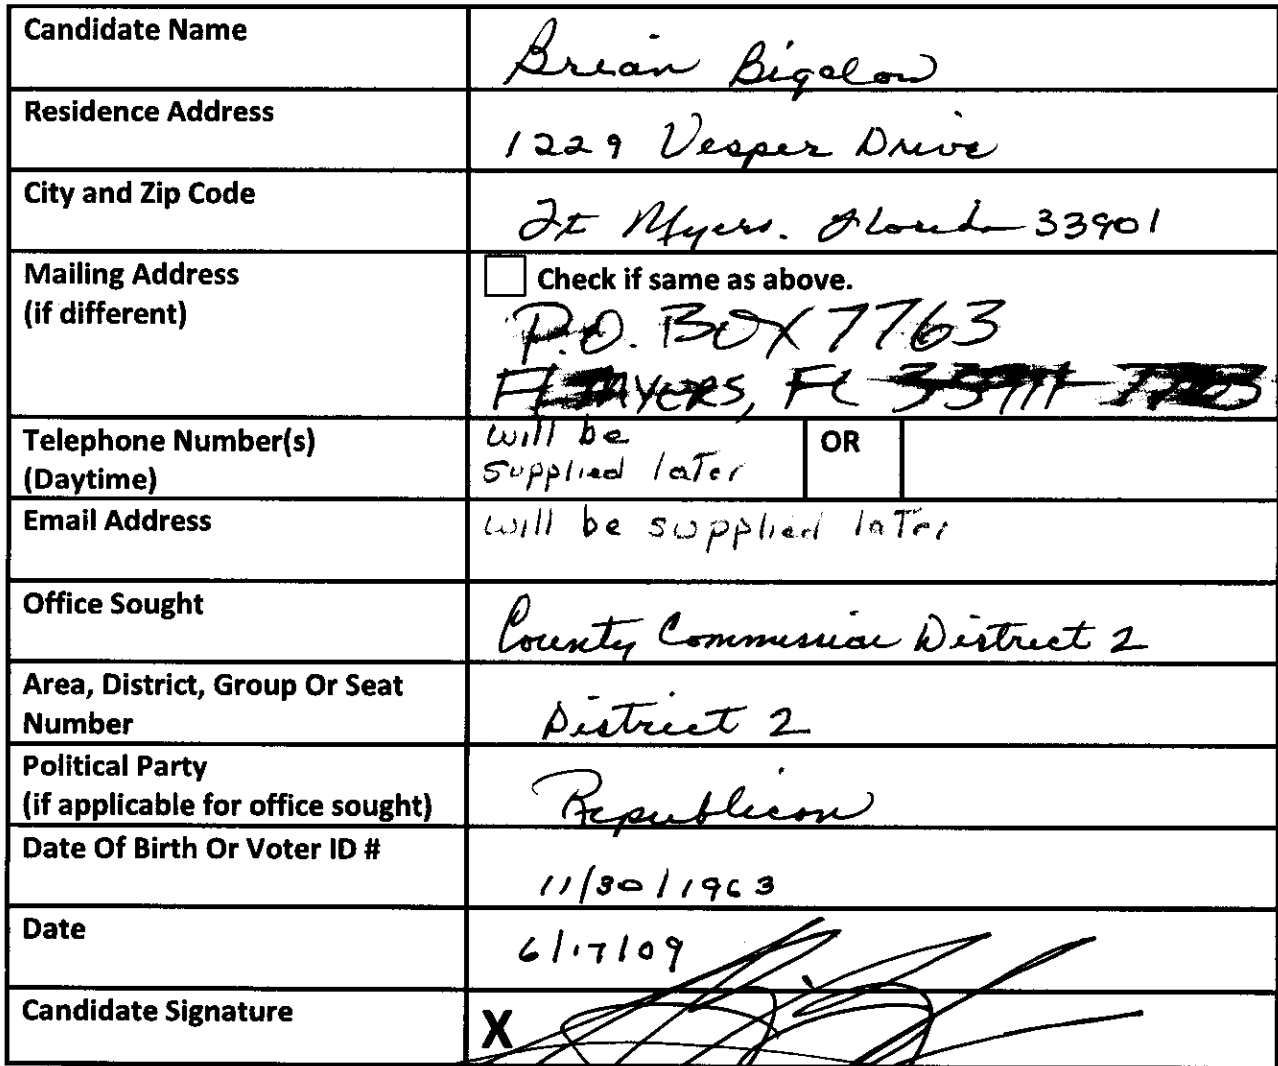 Candidate Name
Brian Bigelow
Residence Address
1229 Vesper Drive
City and Zip Code
Ft Myers. Florida 33901
Mailing Address
(if different)
Check if same as above.
P.O. BOX 7763
Ft MYERS, FL
Telephone Number(s)
(Daytime)
will be
supplied later
OR
Email Address
will be supplied later
Office Sought
County Commission District 2
Area, District, Group Or Seat
Number
District 2
Political Party
(if applicable for office sought)
Republican
Date Of Birth Or Voter ID #
11/30/1963
Date
6/17/09
Candidate Signature
X